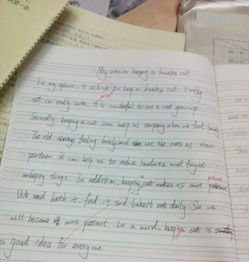 My view on keeping a homeless cat
In my opinion, it is kind to keep a homeless cat. Firstly
cat is really cute. It is wonderful to see a cat grow up.
Secondly keeping a cat can keep us company when we feel lonely
The old always feeling lonely and see the cats as their
partner. It can help us to reduce loneliness and forget
unhappy things. In addition, keeping cat makes us more patience
We need bath it, feed it and take it out daily. So we
will become more patient. In a word, keeping a cat is
a good idea for everyone